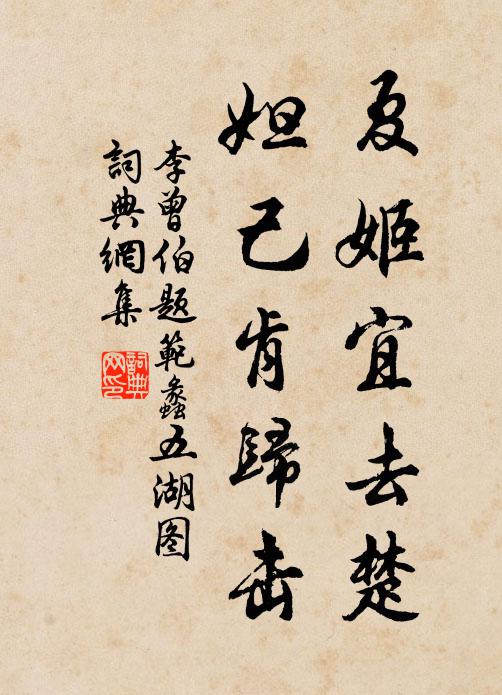 夏姬宜去楚
妲己肯歸击
李曾伯题範蠡五湖图
詞典網集
詞典网印